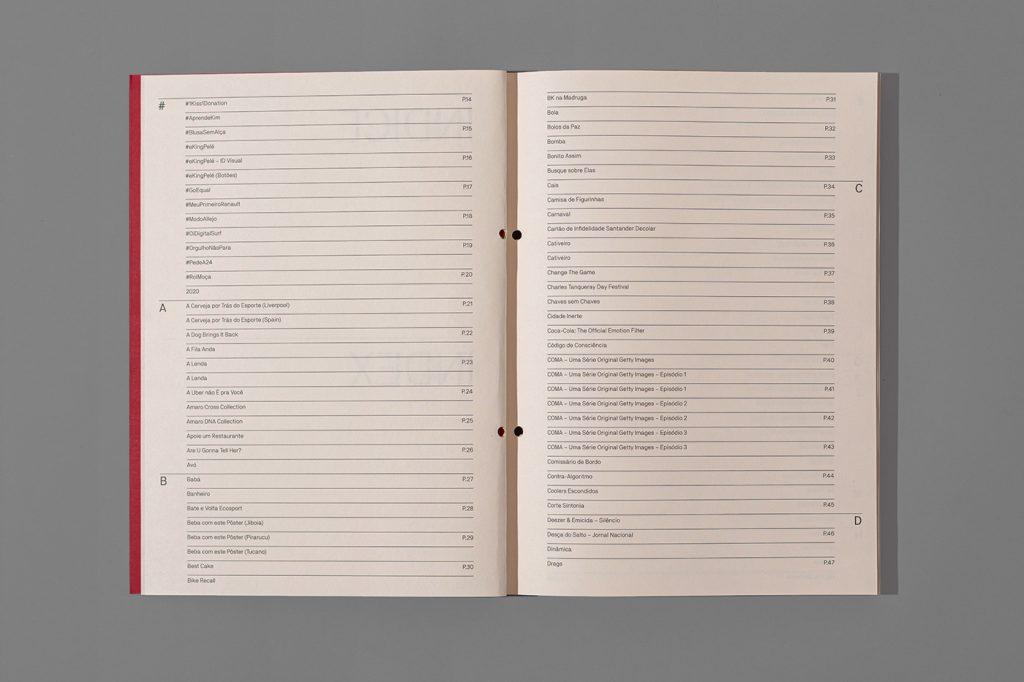 #
#1Kiss1Donation P.14
#AprendeKim
#BlusaSemAlça P.15
#eKingPelé
#eKingPelé – ID Visual P.16
#eKingPelé (Botões)
#GoEqual P.17
#MeuPrimeiroRenault
#ModoAllejo P.18
#OiDigitalSurf
#OrgulhoNãoPara P.19
#PedeA24
#RolMoça P.20
2020
A
A Cerveja por Trás do Esporte (Liverpool) P.21
A Cerveja por Trás do Esporte (Spain)
A Dog Brings It Back P.22
A Fila Anda
A Lenda P.23
A Lenda
A Uber não É pra Você P.24
Amaro Cross Collection
Amaro DNA Collection P.25
Apoie um Restaurante
Are U Gonna Tell Her? P.26
Avó
B
Babá P.27
Banheiro
Bate e Volta Ecosport P.28
Beba com este Pôster (Jiboia)
Beba com este Pôster (Pirarucu) P.29
Beba com este Pôster (Tucano)
Best Cake P.30
Bike Recall
BK na Madruga P.31
Bola
Bolos da Paz P.32
Bomba
Bonito Assim P.33
Busque sobre Elas
C
Cais P.34
Camisa de Figurinhas
Carnaval P.35
Cartão de Infidelidade Santander Decolar
Cativeiro P.36
Cativeiro
Change The Game P.37
Charles Tanqueray Day Festival
Chaves sem Chaves P.38
Cidade Inerte
Coca-Cola: The Official Emotion Filter P.39
Código de Consciência
COMA – Uma Série Original Getty Images P.40
COMA – Uma Série Original Getty Images – Episódio 1
COMA – Uma Série Original Getty Images – Episódio 1 P.41
COMA – Uma Série Original Getty Images – Episódio 2
COMA – Uma Série Original Getty Images – Episódio 2 P.42
COMA – Uma Série Original Getty Images – Episódio 3
COMA – Uma Série Original Getty Images – Episódio 3 P.43
Comissário de Bordo
Contra-Algoritmo P.44
Coolers Escondidos
Corte Sintonia P.45
D
Deezer & Emicida – Silêncio
Desça do Salto – Jornal Nacional P.46
Dinâmica
Drago P.47